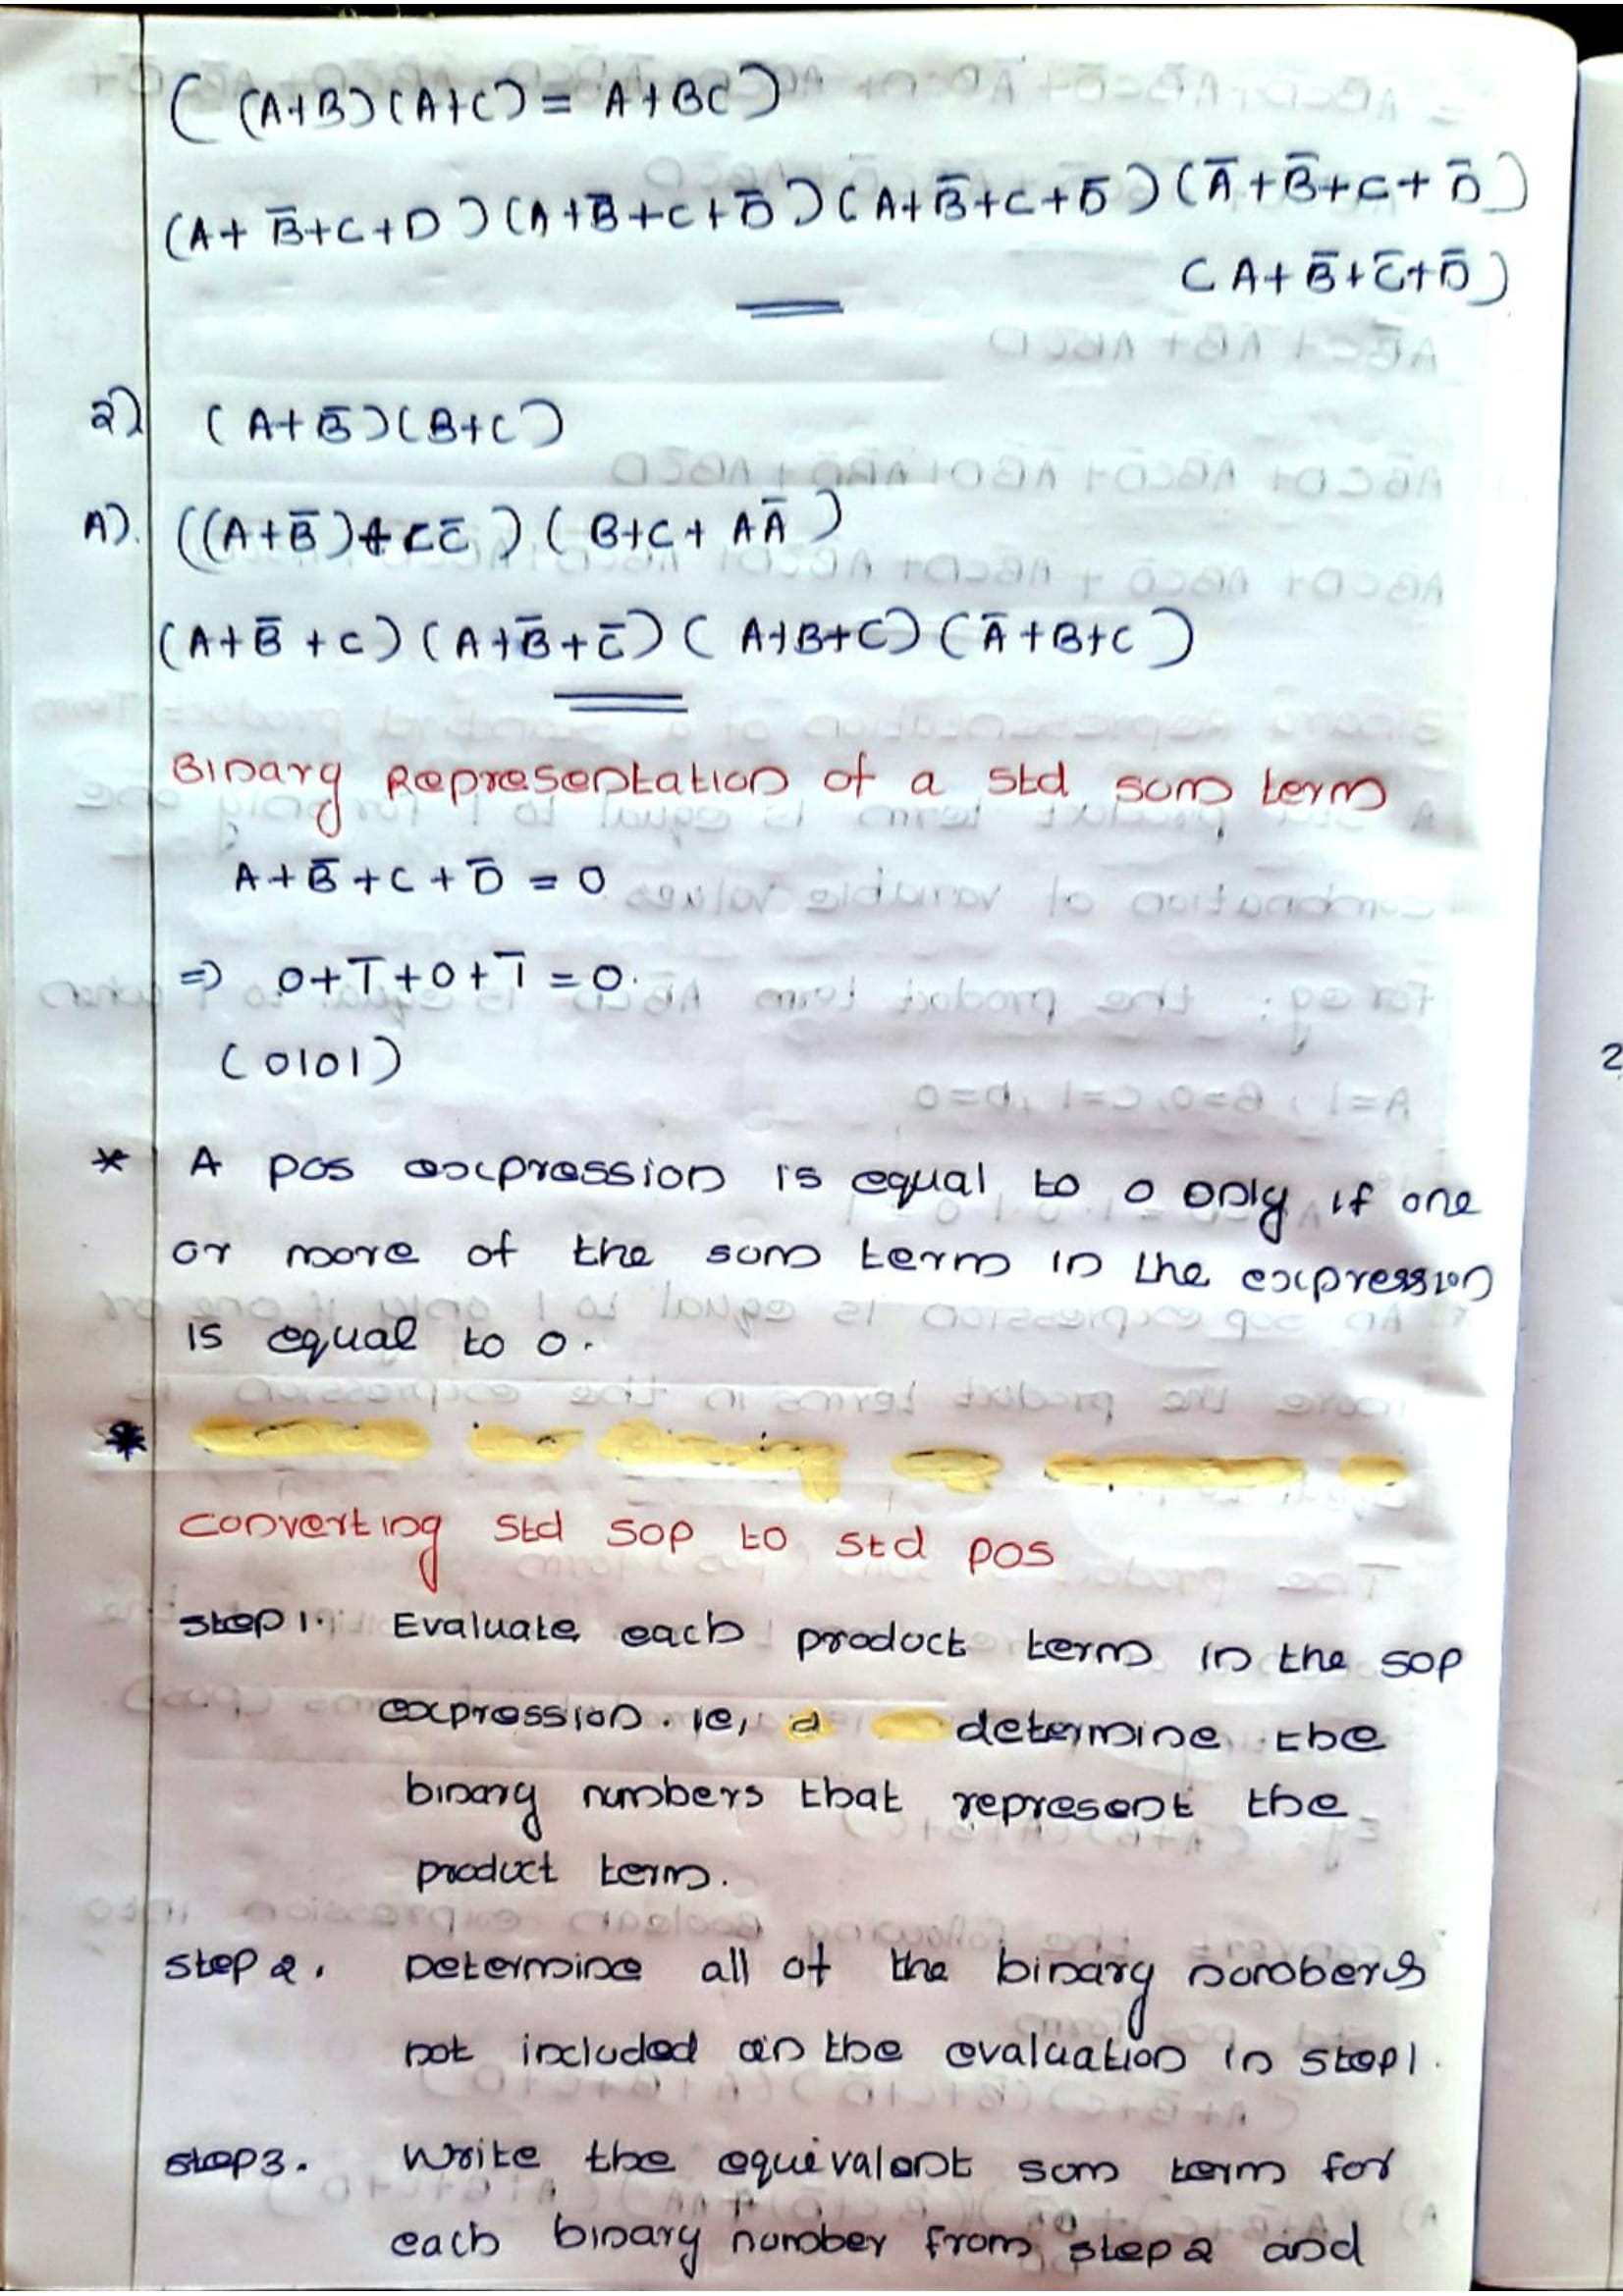 ( (A+B)(A+C) = A+BC)
(A+B̅+C+D)(A+B̅+C+D̅)(A+B̅+C+D̅)(A̅+B̅+C+D̅)
(A+B̅+C̅+D̅)
2) (A+B̅)(B+C)
A). ((A+B̅)+CC̅)(B+C+AA̅)
(A+B̅+C)(A+B̅+C̅)(A+B+C)(A̅+B+C)
Binary Representation of a std sum term
A+B̅+C+D̅ = 0
=> 0+1̅+0+1̅ = 0.
(0101)
* A pos expression is equal to 0 only if one
or more of the sum term in the expression
is equal to 0.
*
Converting Std SOP to Std POS
Step 1. Evaluate each product term in the SOP
expression. ie, d determine the
binary numbers that represent the
product term.
Step 2. Determine all of the binary numbers
not included in the evaluation in step1.
Step3. Write the equivalent sum term for
each binary number from step2 and
2